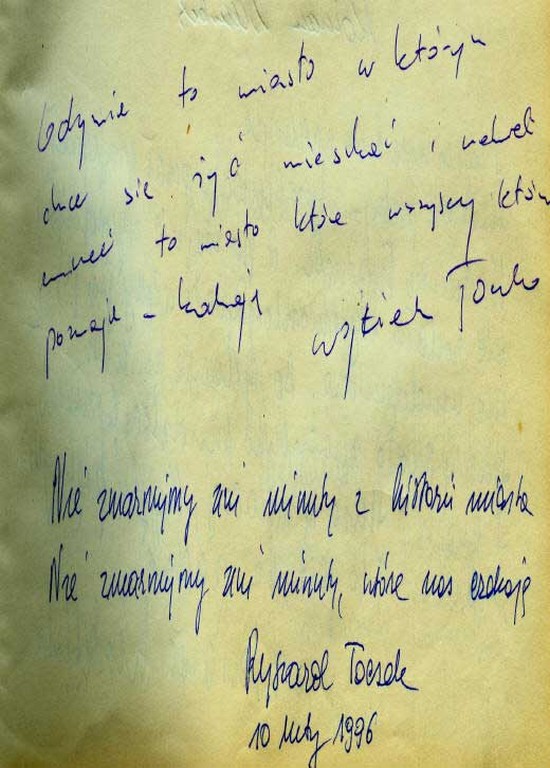 Gdynia to miasto w którym
chce się żyć mieszkać i nawet
umrzeć to miasto które wszyscy któr
poznają – kochają
Wojciech
Nie zmarnujmy ani minuty z historii miasta
Nie zmarnujmy ani minuty, które nas czekają
Ryszard Toczek
10 luty 1996